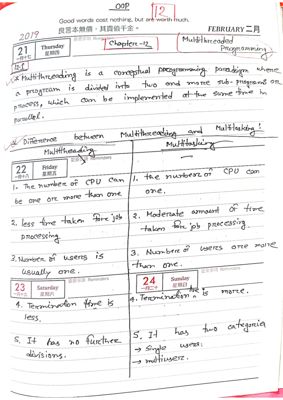 OOP
12
Good words cost nothing, but are worth much.
良言本無價，其貴值千金。
FEBRUARY 二月
2019
21 Thursday 星期四
一月十七
Chapter-12
Multithreaded
Programming
12.1
Multithreading is a conceptual programming paradigm where
a program is divided into two and more sub-programs or
process, which can be implemented at the same time in
parallel.
Difference between Multithreading and Multitasking:
Multithreading
Multitasking
22 Friday 星期五
一月十八
1. The number of CPU can
be one or more than one
2. less time taken for job
processing
3. Number of users is
usually one.
1. the number of CPU can
one.
2. Moderate amount of time
taken for job processing.
3. Number of users one more
than one.
23 Saturday 星期六
一月十九
Reminders
24 Sunday 星期日
一月二十
Reminders
4. Termination time is
less.
5. It has no further
divisions.
4. Termination time is more.
5. It has two categories
→ Single user.
→ multiuser.